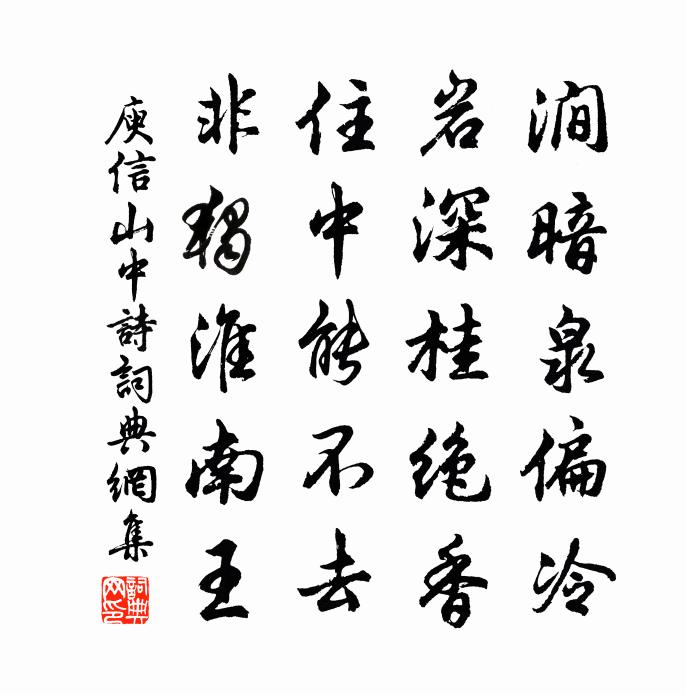 澗暗泉偏冷
岩深桂绝香
住中能不去
非獨淮南王
庾信山中詩詞典網集
詞典网印